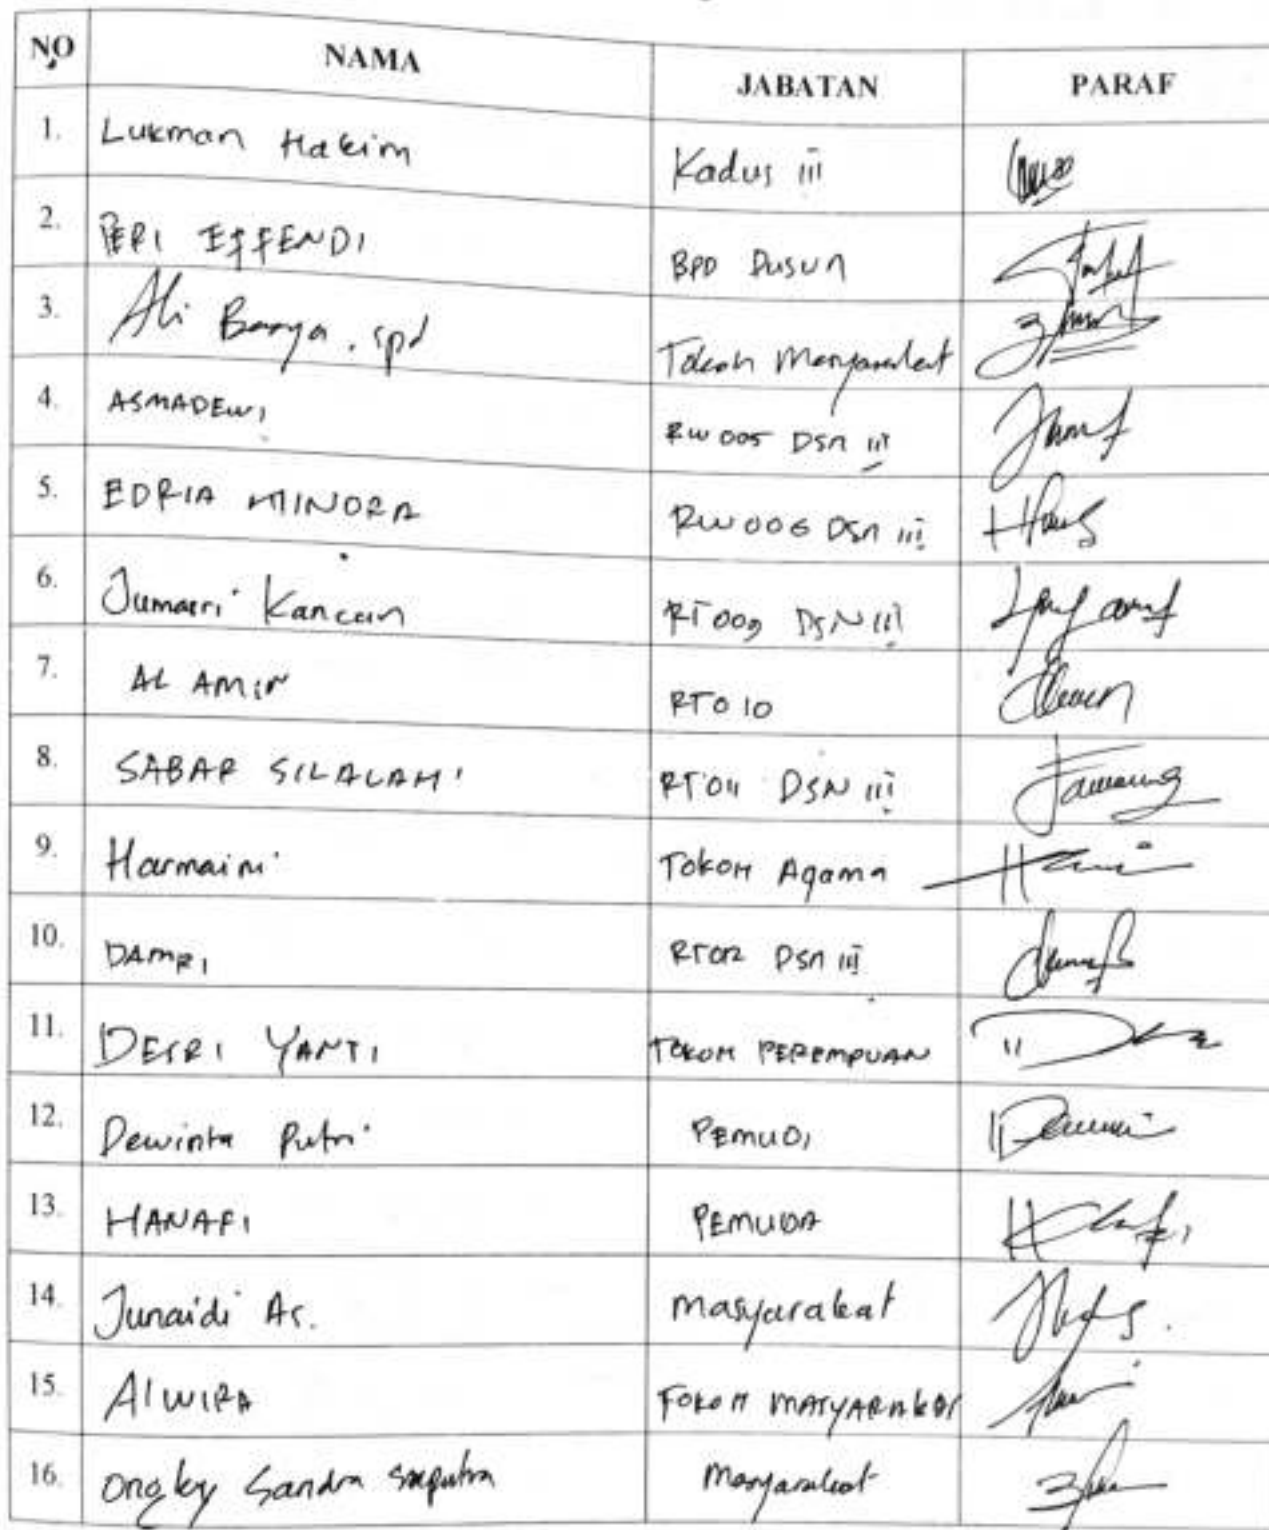 NO NAMA JABATAN PARAF
1. Lukman Hakim Kadus III
2. PERI EFFENDI BPD Dusun
3. Ali Barya, Spd Tokoh Masyarakat
4. ASMADEWI RW 005 DSN III
5. EDRIA MINORA RW 006 DSN III
6. Jumairi Kancan RT 009 DSN III
7. AL AMIN RT 010
8. SABAR SILALAHI RT 011 DSN III
9. Harmaini TOKOH Agama
10. DAMRI RT 012 DSN III
11. DESRI YANTI TOKOH PEREMPUAN
12. Dewinta Putri PEMUDI
13. HANAFI PEMUDA
14. Junaidi As. Masyarakat
15. ALWIRA TOKOH MASYARAKAT
16. Ongky Sandra Saputra Masyarakat